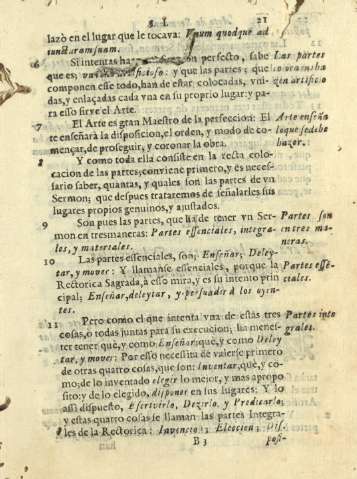 §. I. 21
lazò en el lugar que le tocava: Vnum quodque ad
iuncturam suam.
6 Si intentas perfecto, sabe Las partes
que es; y que las partes; que
componen esse todo, han de estar colocadas, vni- artificio
das, y enlaçadas cada vna en su proprio lugar: y pa-
ra esso sirve el Arte.
7 El Arte es gran Maestro de la perfeccion: El Arte enseña
te enseñarà la disposicion, el orden, y modo de co- lo que se debe
mençar, de proseguir, y coronar la obra. hazer.
8 Y como toda ella consiste en la recta colo-
cacion de las partes; conviene primero, y es neces-
sario saber, quantas, y quales son las partes de vn
Sermon; que despues trataremos de señalarles sus
lugares propios genuinos, y ajustados.
9 Son pues las partes, que ha de tener vn Ser- Partes son
mon en tres maneras: Partes essenciales, integra- en tres ma-
les, y materiales. neras.
10 Las partes essenciales, son; Enseñar, Deley-
tar, y mover: Y llamanse essenciales, porque la Partes esse-
Rectorica Sagrada, à esso mira, y es su intento prin- ciales.
cipal; Enseñar, deleytar, y persuadir à los oyen-
tes.
11 Pero como el que intenta vna de estas tres Partes inte
cosas, ò todas juntas para su execucion; ha menes- grales.
ter tener què, y como Enseñar; què, y como Deley
tar, y mover: Por esso necessita de valerse primero
de otras quatro cosas, que son: Inventar, què, y co-
mo; de lo inventado elegir lo mejor, y mas apropo
sito: y de lo elegido, disponer en sus lugares: Y lo
assi dispuesto, Escrivirlo, Dezirlo, y Predicarlo;
y estas quatro cosas se llaman las partes Integra-
les de la Rectorica: Invencion; Eleccion; Dis-
B 3 posi-